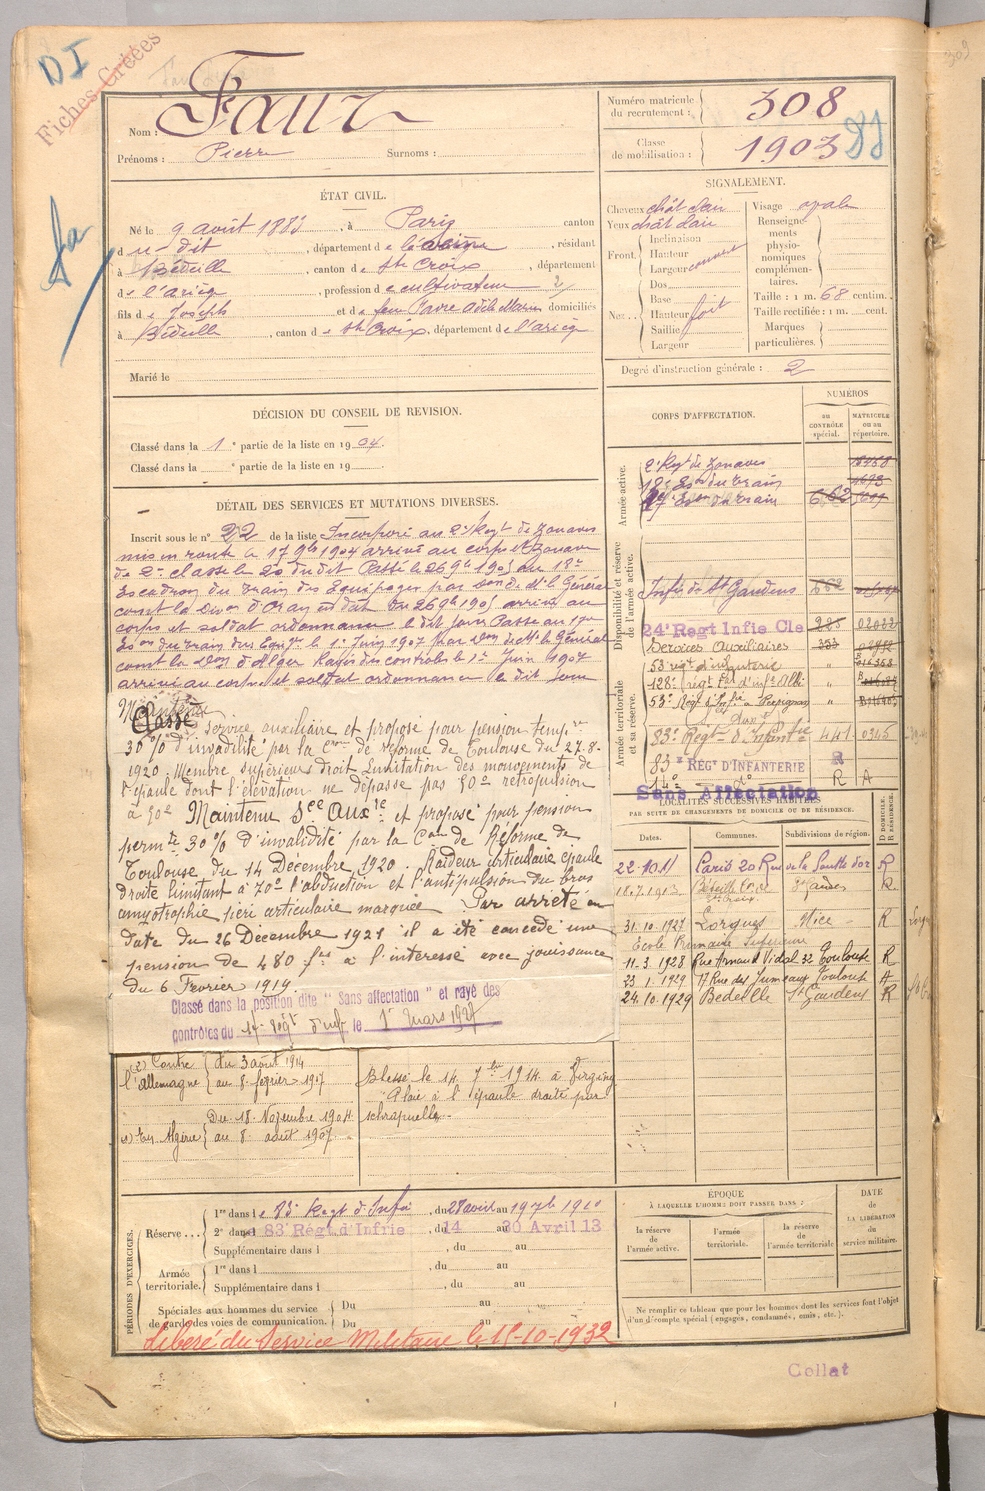 DI
Fiches Créées
Nom : Faur
Prénoms : Pierre Surnoms :
Numéro matricule du recrutement : 308
Classe de mobilisation : 1903
ÉTAT CIVIL.
Né le 9 août 1883, à Paris canton
d u-dit, département de la Seine, résidant
à Bédeille, canton de Ste Croix, département
de l'ariège, profession de cultivateur
fils de Joseph et de feu Favre Adèle Marie domiciliés
à Bédeille, canton de Ste Croix, département de l'ariège
Marié le
SIGNALEMENT.
Cheveux chât clair Visage ovale
Yeux chât clair
Front. Inclinaison
Hauteur
Largeur
Nez.. Dos
Base
Hauteur fort
Saillie
Largeur
Renseignements physionomiques complémentaires.
Taille : 1 m. 68 centim.
Taille rectifiée : 1 m. cent.
Marques particulières.
Degré d'instruction générale : 2
DÉCISION DU CONSEIL DE REVISION.
Classé dans la 1e partie de la liste en 1904
Classé dans la e partie de la liste en 19
DÉTAIL DES SERVICES ET MUTATIONS DIVERSES.
Inscrit sous le n° 22 de la liste Incorporé au 2e Regt de Zouaves
mis en route le 17 9bre 1904 arrivé au corps et Zouave
de 2e classe le 20 du dit Passé le 26 9bre 1905 au 18e
Escadron du Train des Equipages par don de Mr le Général
comt la Divon d'Oran en date du 26 9bre 1905 arrivé au
corps et soldat ordonnance le dit jour Passé au 17e
Eson du train des Equipges le 1er Juin 1907 par don de Mr le Général
comt la don d'Alger Rayé des contrôles le 1er Juin 1907
arrivé au corps et soldat ordonnance le dit jour
Maintenu
Classé service auxiliaire et proposé pour pension tempre
30% d'invalidité par la Con de réforme de Toulouse du 27-8-
1920. Membre supérieur droit Limitation des mouvements de
l'épaule dont l'élévation ne dépasse pas 90° retropulsion
à 50° Maintenu Sce Auxre et proposé pour pension
permte 30% d'invalidité par la Con de Réforme de
Toulouse du 14 Décembre 1920. Raideur articulaire épaule
droite limitant à 70° l'abduction et l'antipulsion du bras
amyotrophie péri articulaire marquée Par arrêté en
date du 26 Décembre 1921 il a été concédé une
pension de 480 frs à l'intéressé avec jouissance
du 6 Février 1919.
Classé dans la position dite "Sans affectation" et rayé des
contrôles du 14e Régt d'inf le 1er Mars 1927
(2) Contre l'Allemagne du 3 août 1914
au 8 février 1917
Du 18 Novembre 1904
(1) En Algérie au 8 août 1907
Blessé le 14 7bre 1914 à
Plaie à l'épaule droite par
schrapnells.
CORPS D'AFFECTATION.
NUMÉROS
au CONTRÔLE spécial.
MATRICULE ou au répertoire.
Armée active.
2e Regt de Zouaves
18e Eson du train
17e Eson du train 662
Disponibilité et réserve de l'armée active.
Infie de St Gaudens 662
24e Regt Infie Cle 225
Services Auxiliaires 253
53e régt d'infanterie "
Armée territoriale et sa réserve.
128e régt tal d'infie Albi "
53e Régt d'Infie à Perpignan "
83e Regt d'Infantrie 441 0345
83e RÉGT D'INFANTERIE R
14e do R A
Sans Affectation
LOCALITÉS SUCCESSIVES HABITÉES
PAR SUITE DE CHANGEMENTS DE DOMICILE OU DE RÉSIDENCE.
Dates. Communes. Subdivisions de région. D DOMICILE. R RÉSIDENCE.
22-10-11 Paris 20 Rue de la Goutte d'or R
18.7.1913 Bédeille Con de Ste Croix St Gaudens R
31.10.1927 Lorgues Nice R
Ecole Primaire Supérieure
11-3-1928 Rue Arnaud Vidal 32 Toulouse R
23.1.1929 17 Rue des Jumeaux Toulouse
24.10.1929 Bedeille St Gaudens R
PÉRIODES D'EXERCICES.
Réserve... 1re dans le 83e Regt d'Infie, du 28 avril au 1910
2e dans le 83e Régt d'Infrie, du 14 au 30 Avril 13
Supplémentaire dans l , du au
Armée territoriale. 1re dans l , du au
Supplémentaire dans l , du au
Spéciales aux hommes du service de garde des voies de communication. Du au
Du au
Libéré du Service Militaire le 15-10-1932
ÉPOQUE
À LAQUELLE L'HOMME DOIT PASSER DANS :
la réserve de l'armée active.
l'armée territoriale.
la réserve de l'armée territoriale
DATE de LA LIBÉRATION du service militaire.
Ne remplir ce tableau que pour les hommes dont les services font l'objet
d'un décompte spécial (engagés, condamnés, omis, etc.).
Collat